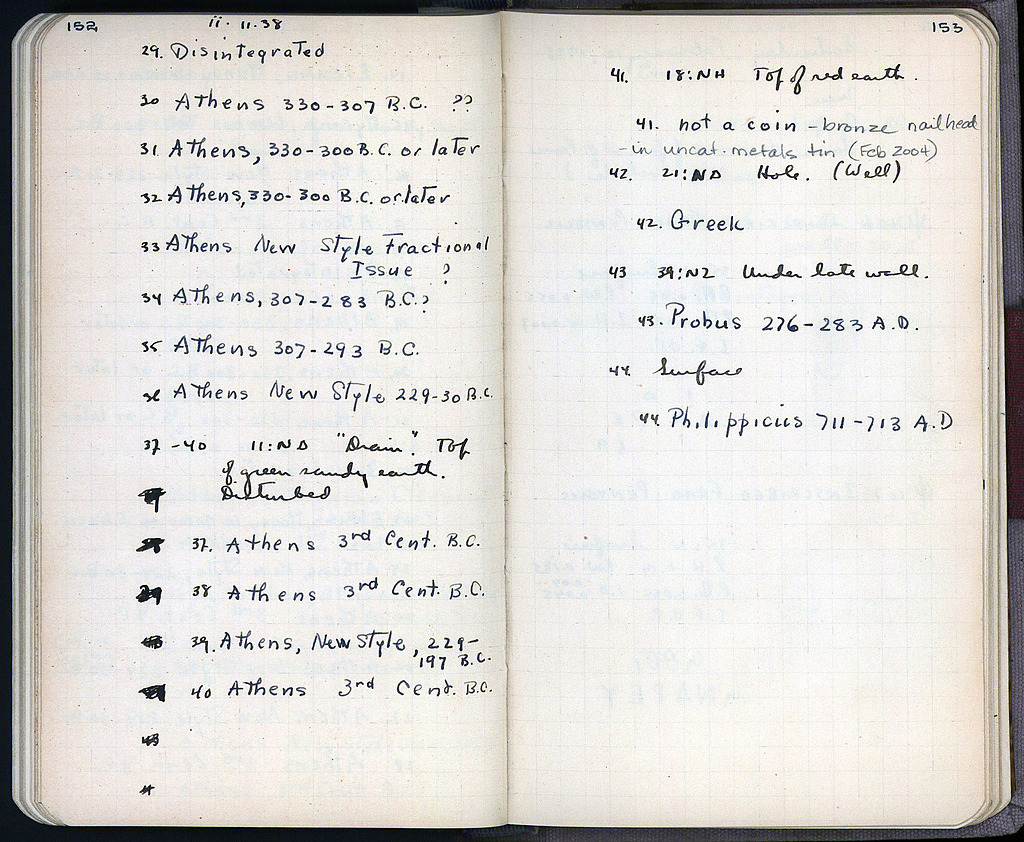 152
ii. 11.38
29. Disintegrated
30 Athens 330-307 B.C. ??
31 Athens, 330-300 B.C. or later
32 Athens, 330-300 B.C. or later
33 Athens New Style Fractional
Issue ?
34 Athens, 307-283 B.C.?
35 Athens 307-293 B.C.
36 Athens New Style 229-30 B.C.
37-40 11:ND "Drain". Top
of green sandy earth.
Disturbed
37. Athens 3rd Cent. B.C.
38 Athens 3rd Cent. B.C.
39. Athens, New Style, 229-
197 B.C.
40 Athens 3rd Cent. B.C.
153
41. 18:NH Top of red earth.
41. not a coin - bronze nail head
- in uncat. metals tin (Feb 2004)
42. 21:ND Hole. (Well)
42. Greek
43 39:NZ Under late wall.
43. Probus 276-283 A.D.
44 Surface
44. Philippicus 711-713 A.D